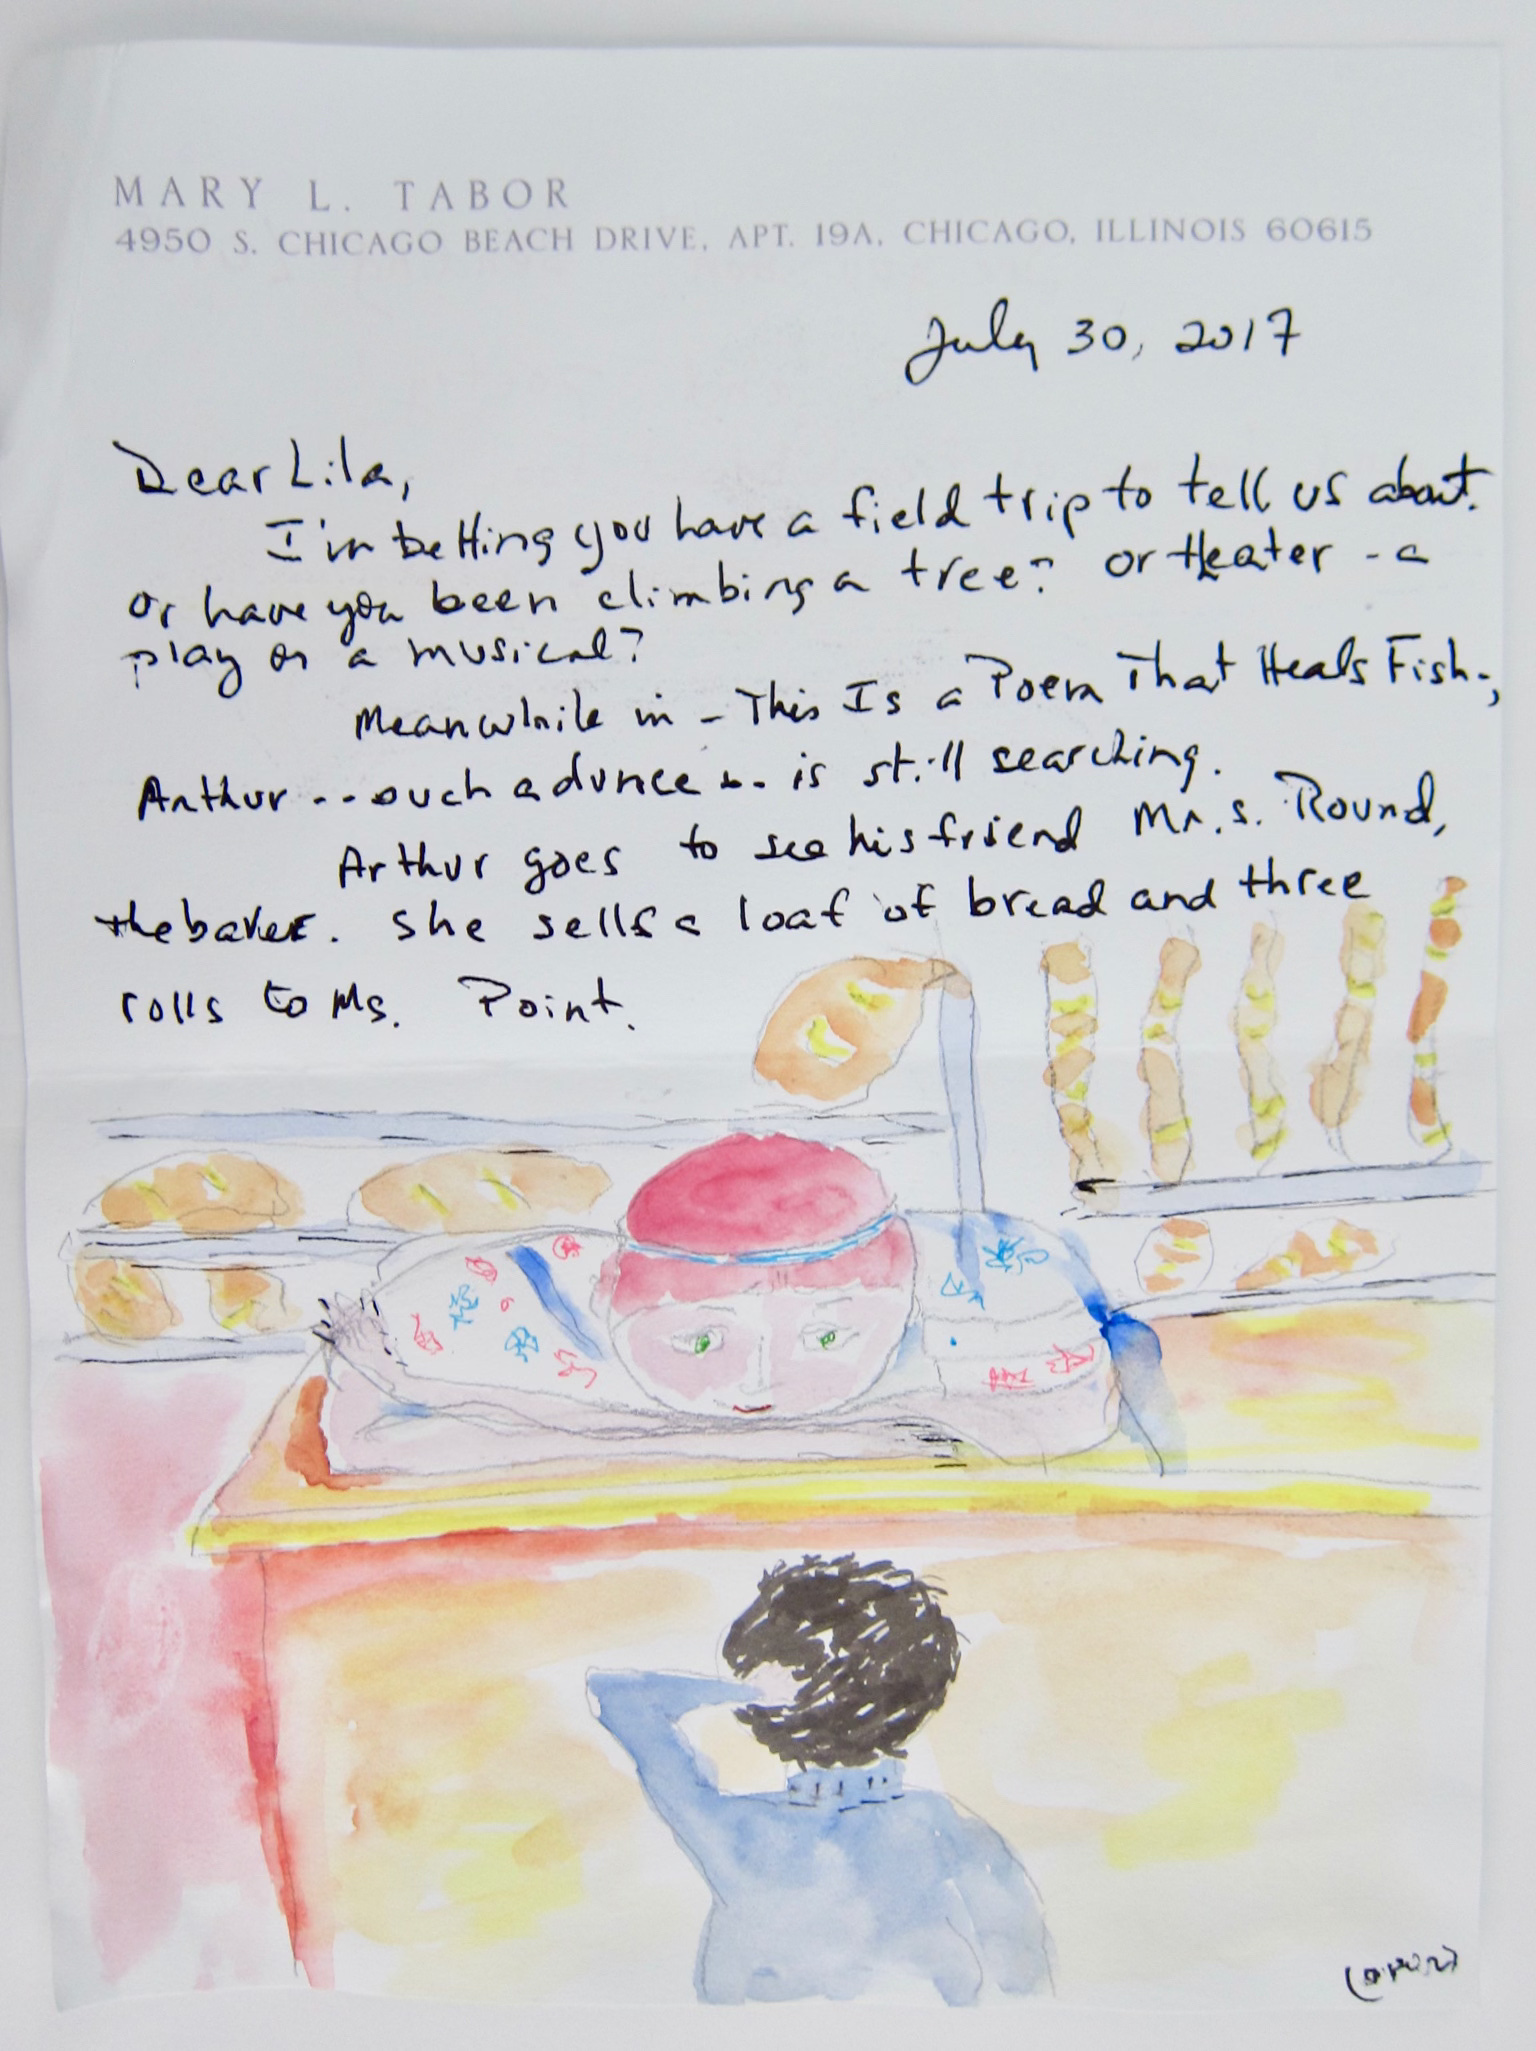 MARY L. TABOR
4950 S. CHICAGO BEACH DRIVE, APT. 19A, CHICAGO, ILLINOIS 60615
July 30, 2017
Dear Lila,
I'm betting you have a field trip to tell us about.
Or have you been climbing a tree? or theater - a
play or a musical?
Meanwhile in - This Is a Poem That Heals Fish -,
Arthur -- such a dunce -- is still searching.
Arthur goes to see his friend Mrs. Round,
the baker. She sells a loaf of bread and three
rolls to Ms. Point.
(over)